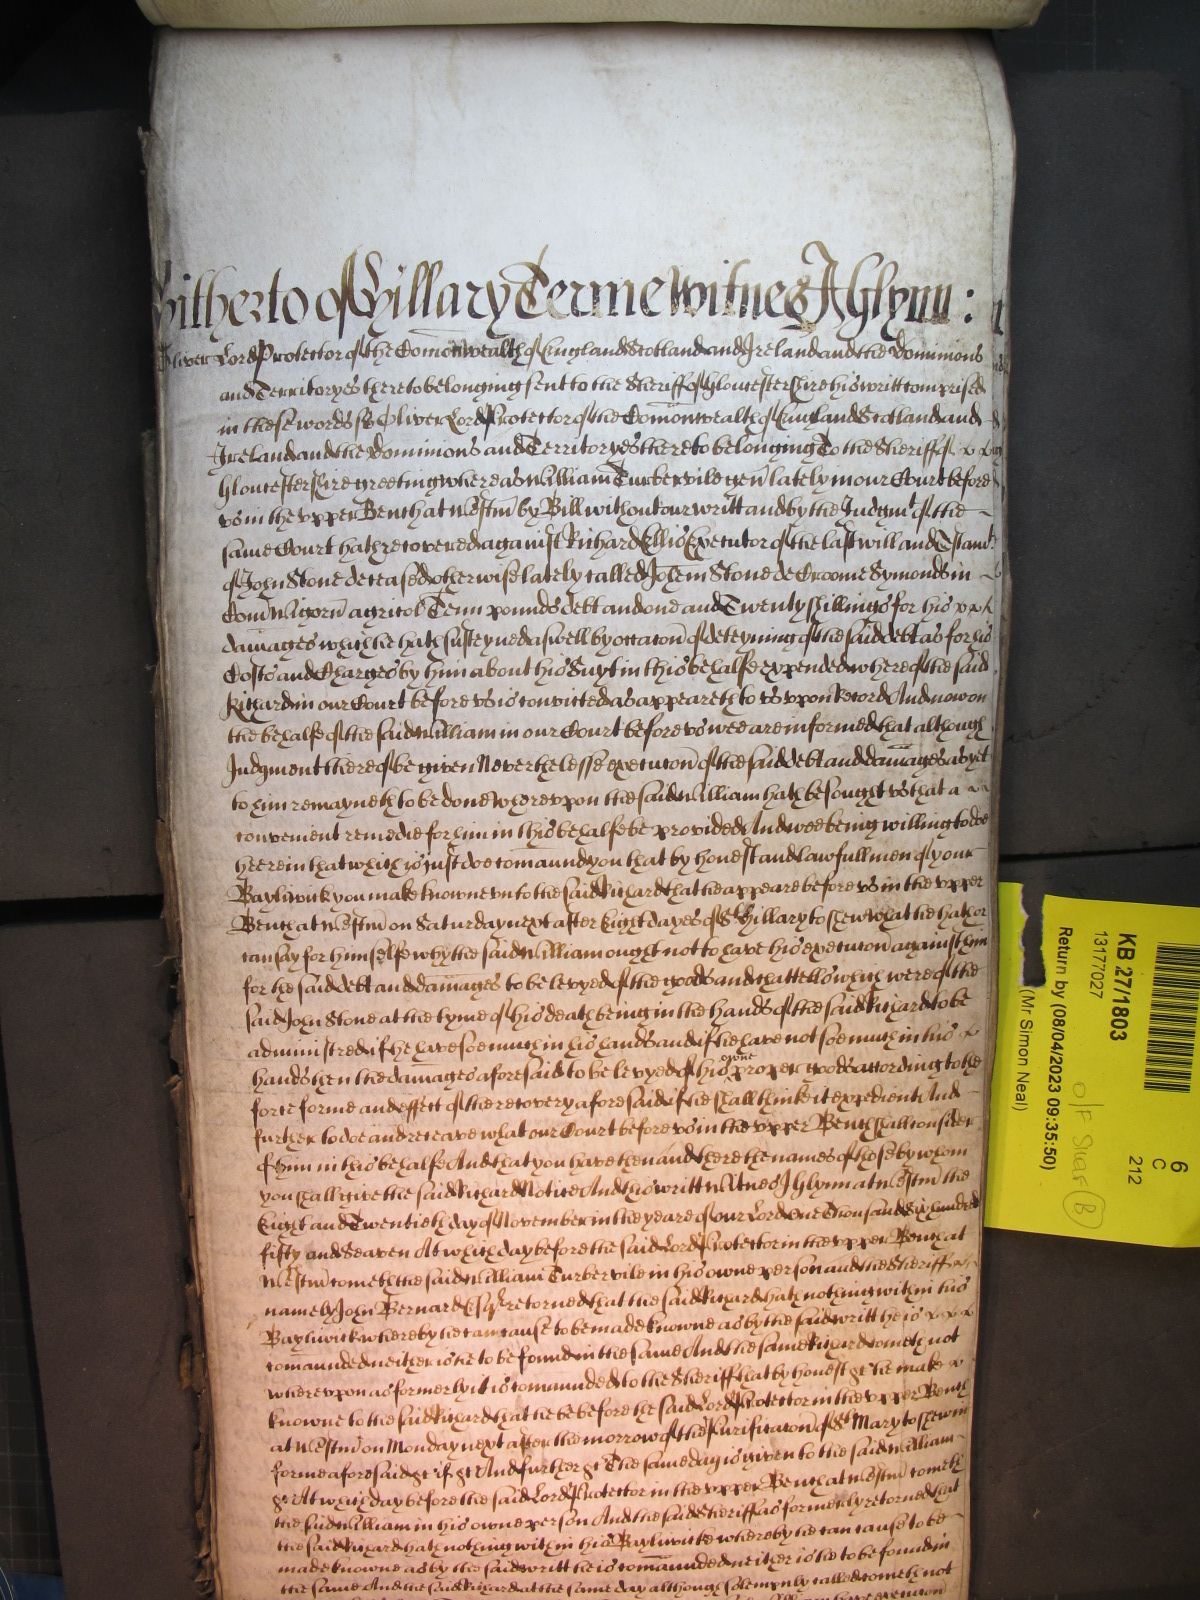 hitherto of Hillary Terme Witnes J Glynn :
Oliver Lord Protector of the Comonwealth of England Scotland and Ireland and the Dominions
and Territoryes thereto belonging sent to the Sheriff of Gloucestershire his writt comprised
in these words ss Oliver Lord Protector of the Comonwealth of England Scotland and
Ireland and the Dominions and Territoryes thereto belonging To the Sheriff of
Gloucestershire greeting whereas William Turbervile gen lately in our Court before
us in the upper Bench at Westm by Bill without our writt and by the Judgmt of the
same Court hath recovered against Richard Ellis Executor of the last will and Testamt
of John Stone deceased otherwise lately called John Stone de Croome Symonds in
Com Wigorn agricol Tenn pounds debt and one and Twenty shillings for his
damages which he hath susteyned aswell by occacon of deteyning of the said debt as for his
Costs and Charges by him about his Suyt in this behalfe expended whereof the said
Richard in our Court before us is convicted as appeareth to us uppon Record And now on
the behalfe of the said William in our Court before us wee are informed that although
Judgment thereof be given Neverthelesse execucon of the said debt and damages as yet
to him remayneth to be done Whereuppon the said William hath besought us that a
convenient remedie for him in this behalfe be provided And wee being willing to doe
heerein that which is just doe comaund you that by honest and lawfull men of your
Bayliwick you make knowne unto the said Richard that he appeare before us in the upper
Bench at Westm on Saturday next after Eight dayes of St Hillary to shew what he hath or
can say for himselfe why the said William ought not to have his execucon against him
for the said debt and damages to be levyed of the goods and chattells which were of the
said John Stone at the tyme of his death being in the hands of the said Richard to be
administred if he have soe much in his hands and if he have not soe much in his
hands then the damages aforesaid to be levyed of his owne proper goods according to the
force forme and effect of the recovery aforesaid if he shall thinke it expedient And
further to doe and receave what our Court before us in the upper Bench shall consider
of him in this behalfe And that you have then and there the names of those by whom
you shall give the said Richard Notice And this writt Witnes J Glynn at Westm the
Eight and Twentieth day of November in the yeare of our Lord One Thousand Six hundred
fifty and Seaven At which day before the said Lord Protector in the upper Bench at
Westm cometh the said William Turbervile in his owne person and the Sheriff
namely John Bernard Esqr retorned that the said Richard hath nothing within his
Bayliwick whereby he can cause to be made knowne as by the said writt he is
comaunded neither is he to be found in the same And the same Richard cometh not
whereuppon as formerly it is comaunded to the Sheriff that by honest &c he make
knowne to the said Richard that he be before the said Lord Protector in the upper Bench
at Westm on Monday next after the morrow of the Purificacon of St Mary to shew in
forme aforesaid &c if &c And further &c The same day is given to the said William
&c At which day before the said Lord Protector in the upper Bench at Westm cometh
the said William in his owne person And the said Sheriff as formerly retorned that
the said Richard hath nothing within his Bayliwick whereby he can cause to be
made knowne as by the said writt he is comaunded neither is he to be found in
the same And the said Richard at the same day although solemnly called cometh not
KB 27/1803
13177027
Return by (08/04/2023 09:35:50)
(Mr Simon Neal)
6
C
212
O/F Staf B